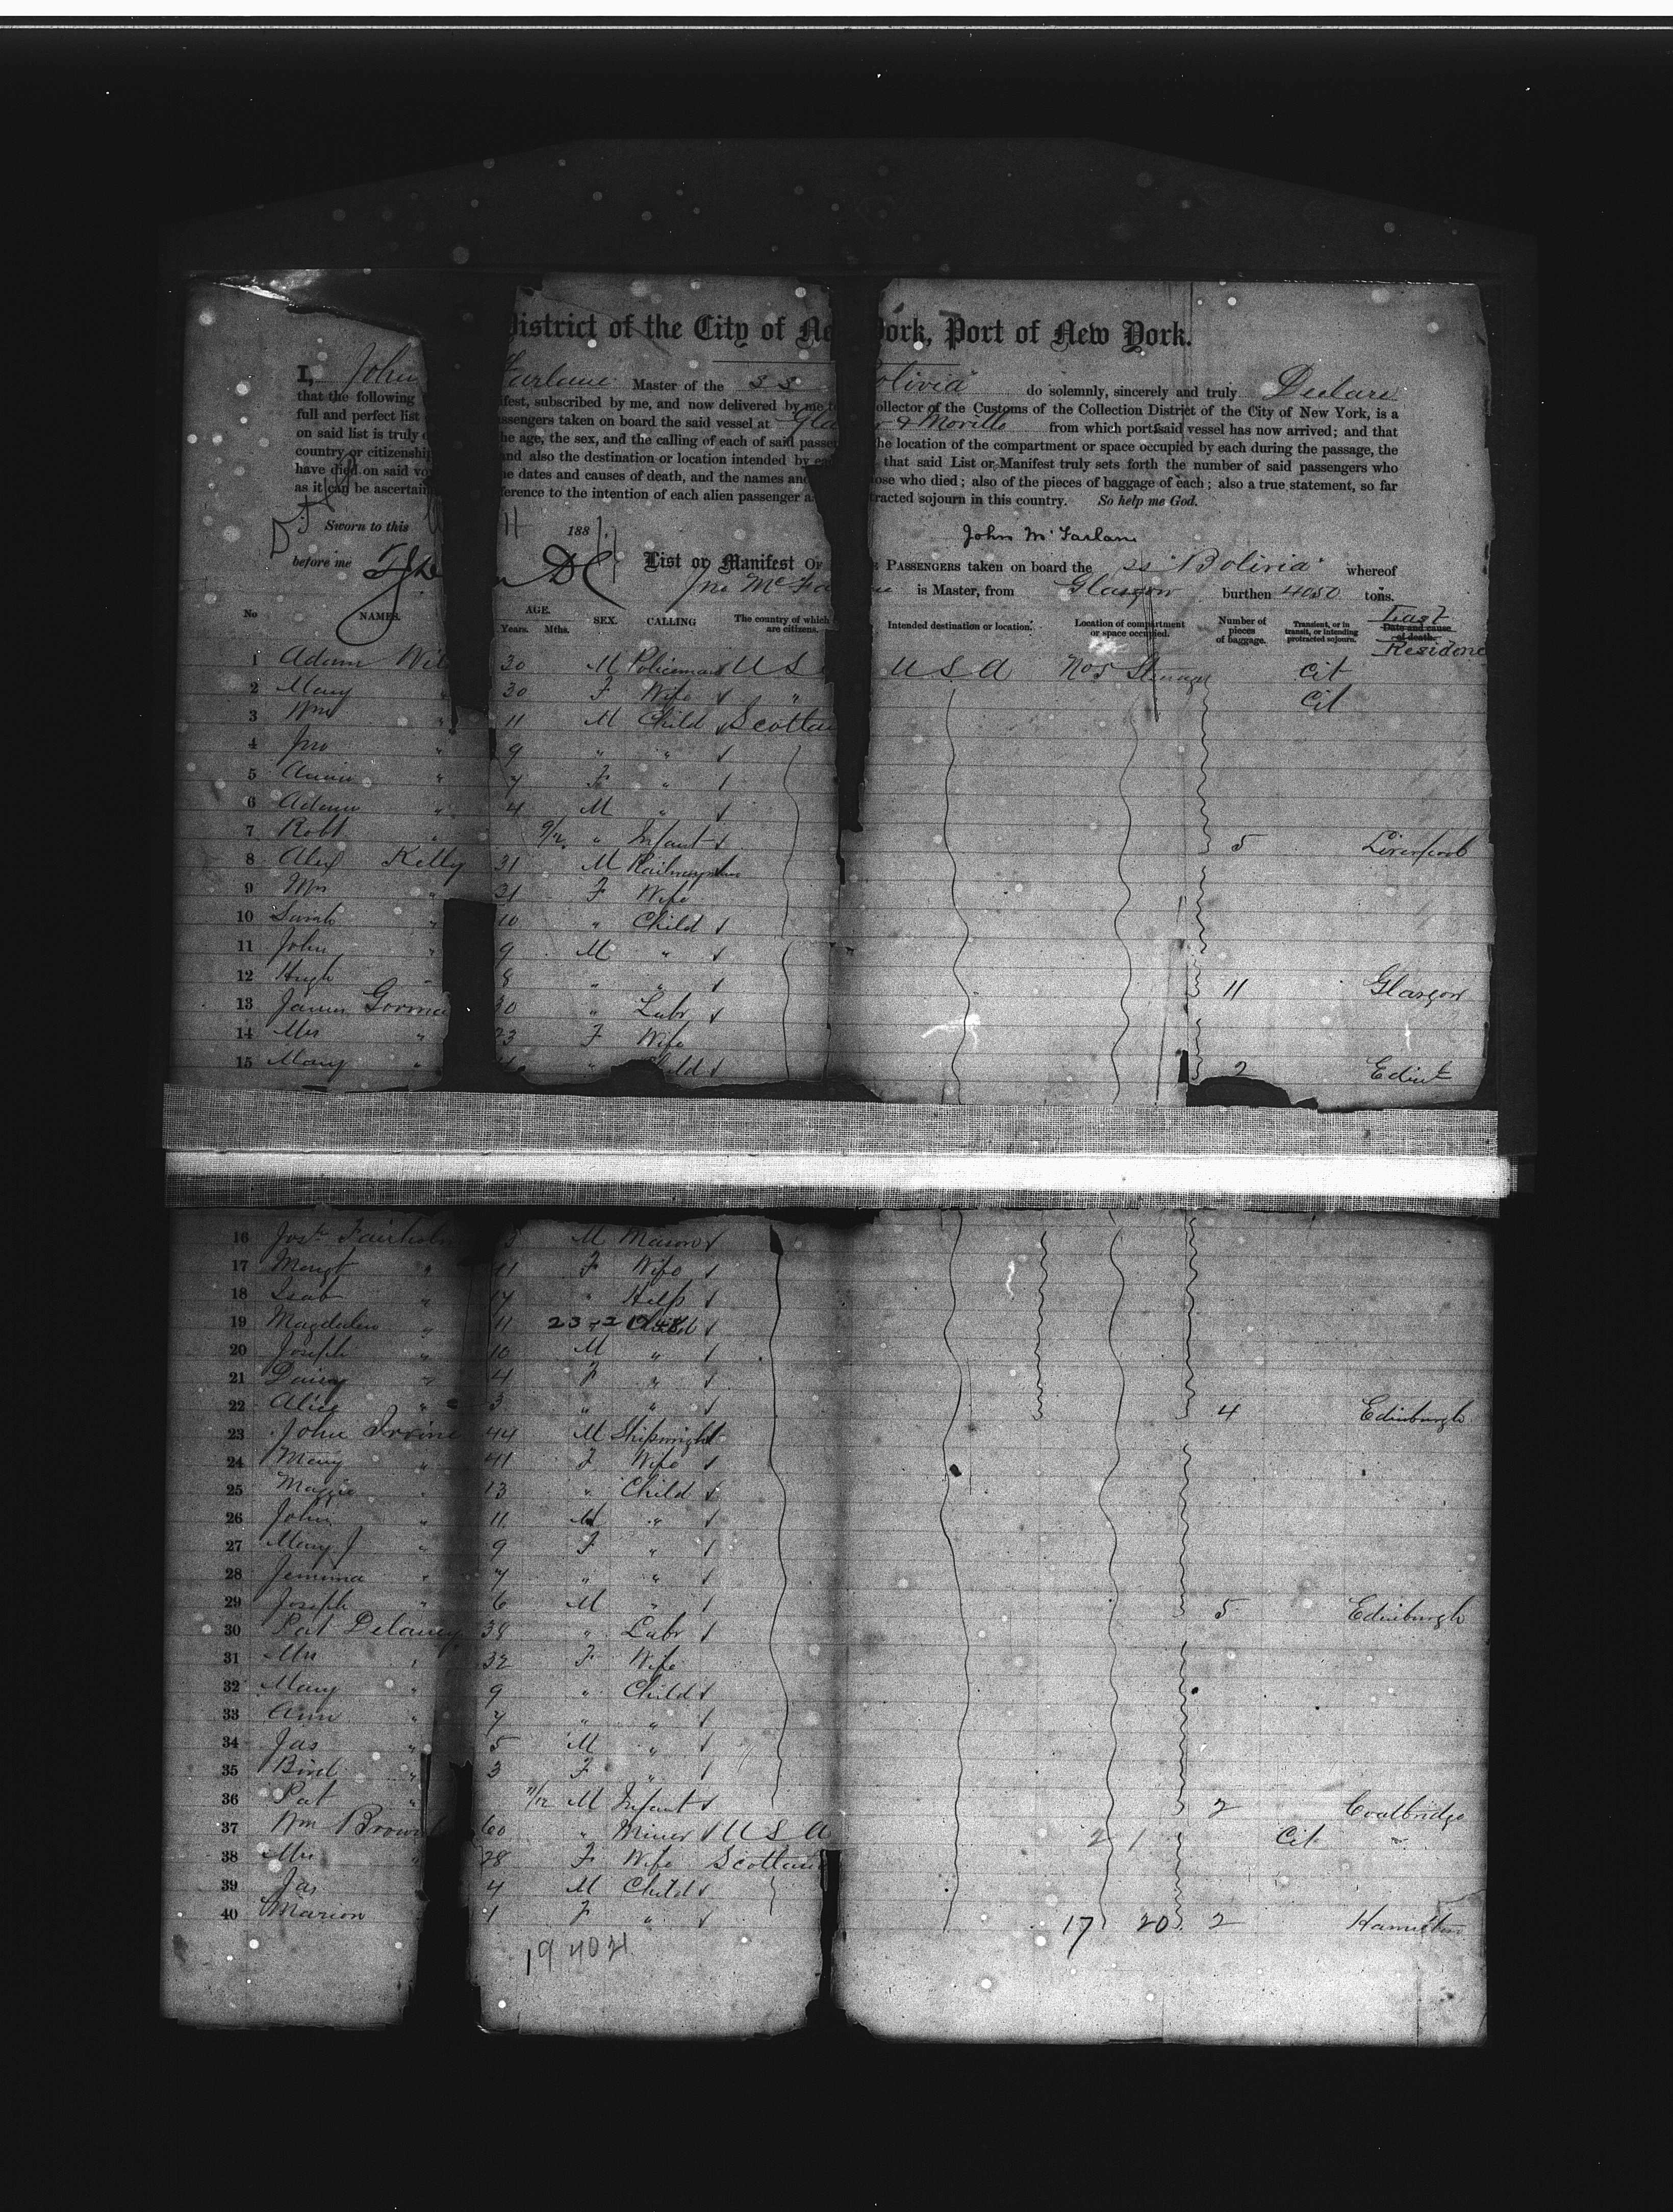 District of the City of Ne York, Port of New York.
I, John Farlane Master of the SS olivia do solemnly, sincerely and truly Declare
that the following ifest, subscribed by me, and now delivered by me t ollector of the Customs of the Collection District of the City of New York, is a
full and perfect list ssengers taken on board the said vessel at Gla & Moville from which port said vessel has now arrived; and that
on said list is truly he age, the sex, and the calling of each of said passe the location of the compartment or space occupied by each during the passage, the
country or citizenship and also the destination or location intended by ea that said List or Manifest truly sets forth the number of said passengers who
have died on said vo he dates and causes of death, and the names and ose who died; also of the pieces of baggage of each; also a true statement, so far
as it can be ascertain ference to the intention of each alien passenger a tracted sojourn in this country. So help me God.
Sworn to this 11 188
John McFarlane
before me
List or Manifest OF PASSENGERS taken on board the ss "Bolivia" whereof
Jno McFa is Master, from Glasgow burthen 4050 tons.
No NAMES. AGE. Years. Mths. SEX. CALLING The country of which are citizens. Intended destination or location. Location of compartment or space occupied. Number of pieces of baggage. Transient, or in transit, or intending protracted sojourn. Date and cause of death. Last Residence
1 Adam Wil 30 M Policeman U S U S A No 5 Steerage Cit
2 Mary " 30 F Wife " Cit
3 Wm " 11 M Child Scotlan
4 Jno " 9 " "
5 Annie " 7 F "
6 Adam " 4 M "
7 Robt " 9/12 " Infant 5 Liverpool
8 Alex Kelly 31 M
9 Mrs " 31 F Wife
10 Sarah " 10 " Child
11 John " 9 M "
12 Hugh 8 " " 11 Glasgow
13 James Gorma 30 " Labr
14 Mrs " 23 F Wife
15 Mary " " ild 2 Edin
16 Josh Fairholm M Mason
17 Margt " 41 F Wife
18 Isab " 17 " Help
19 Magdalen " 11 23-2 1948
20 Joseph " 10 M "
21 Daisy " 4 F "
22 Alice " 3 " " 4 Edinburgh
23 John Irvine 44 M Shipwright
24 Mary " 41 F Wife
25 Maggie " 13 " Child
26 John " 11 M "
27 Mary J " 9 F "
28 Jemima " 7 " "
29 Joseph " 6 M " 5 Edinburgh
30 Pat Delaney 38 " Labr
31 Mrs " 32 F Wife
32 Mary " 9 " Child
33 Ann " 7 " "
34 Jas " 5 M "
35 Brid " 3 F "
36 Pat " 11/12 M Infant 2 Coatbridge
37 Wm Brown 60 " Miner U S A 2 1 Cit "
38 Mrs " 28 F Wife Scotland
39 Jas 4 M Child
40 Marion 1 F " 17 20 2 Hamilton